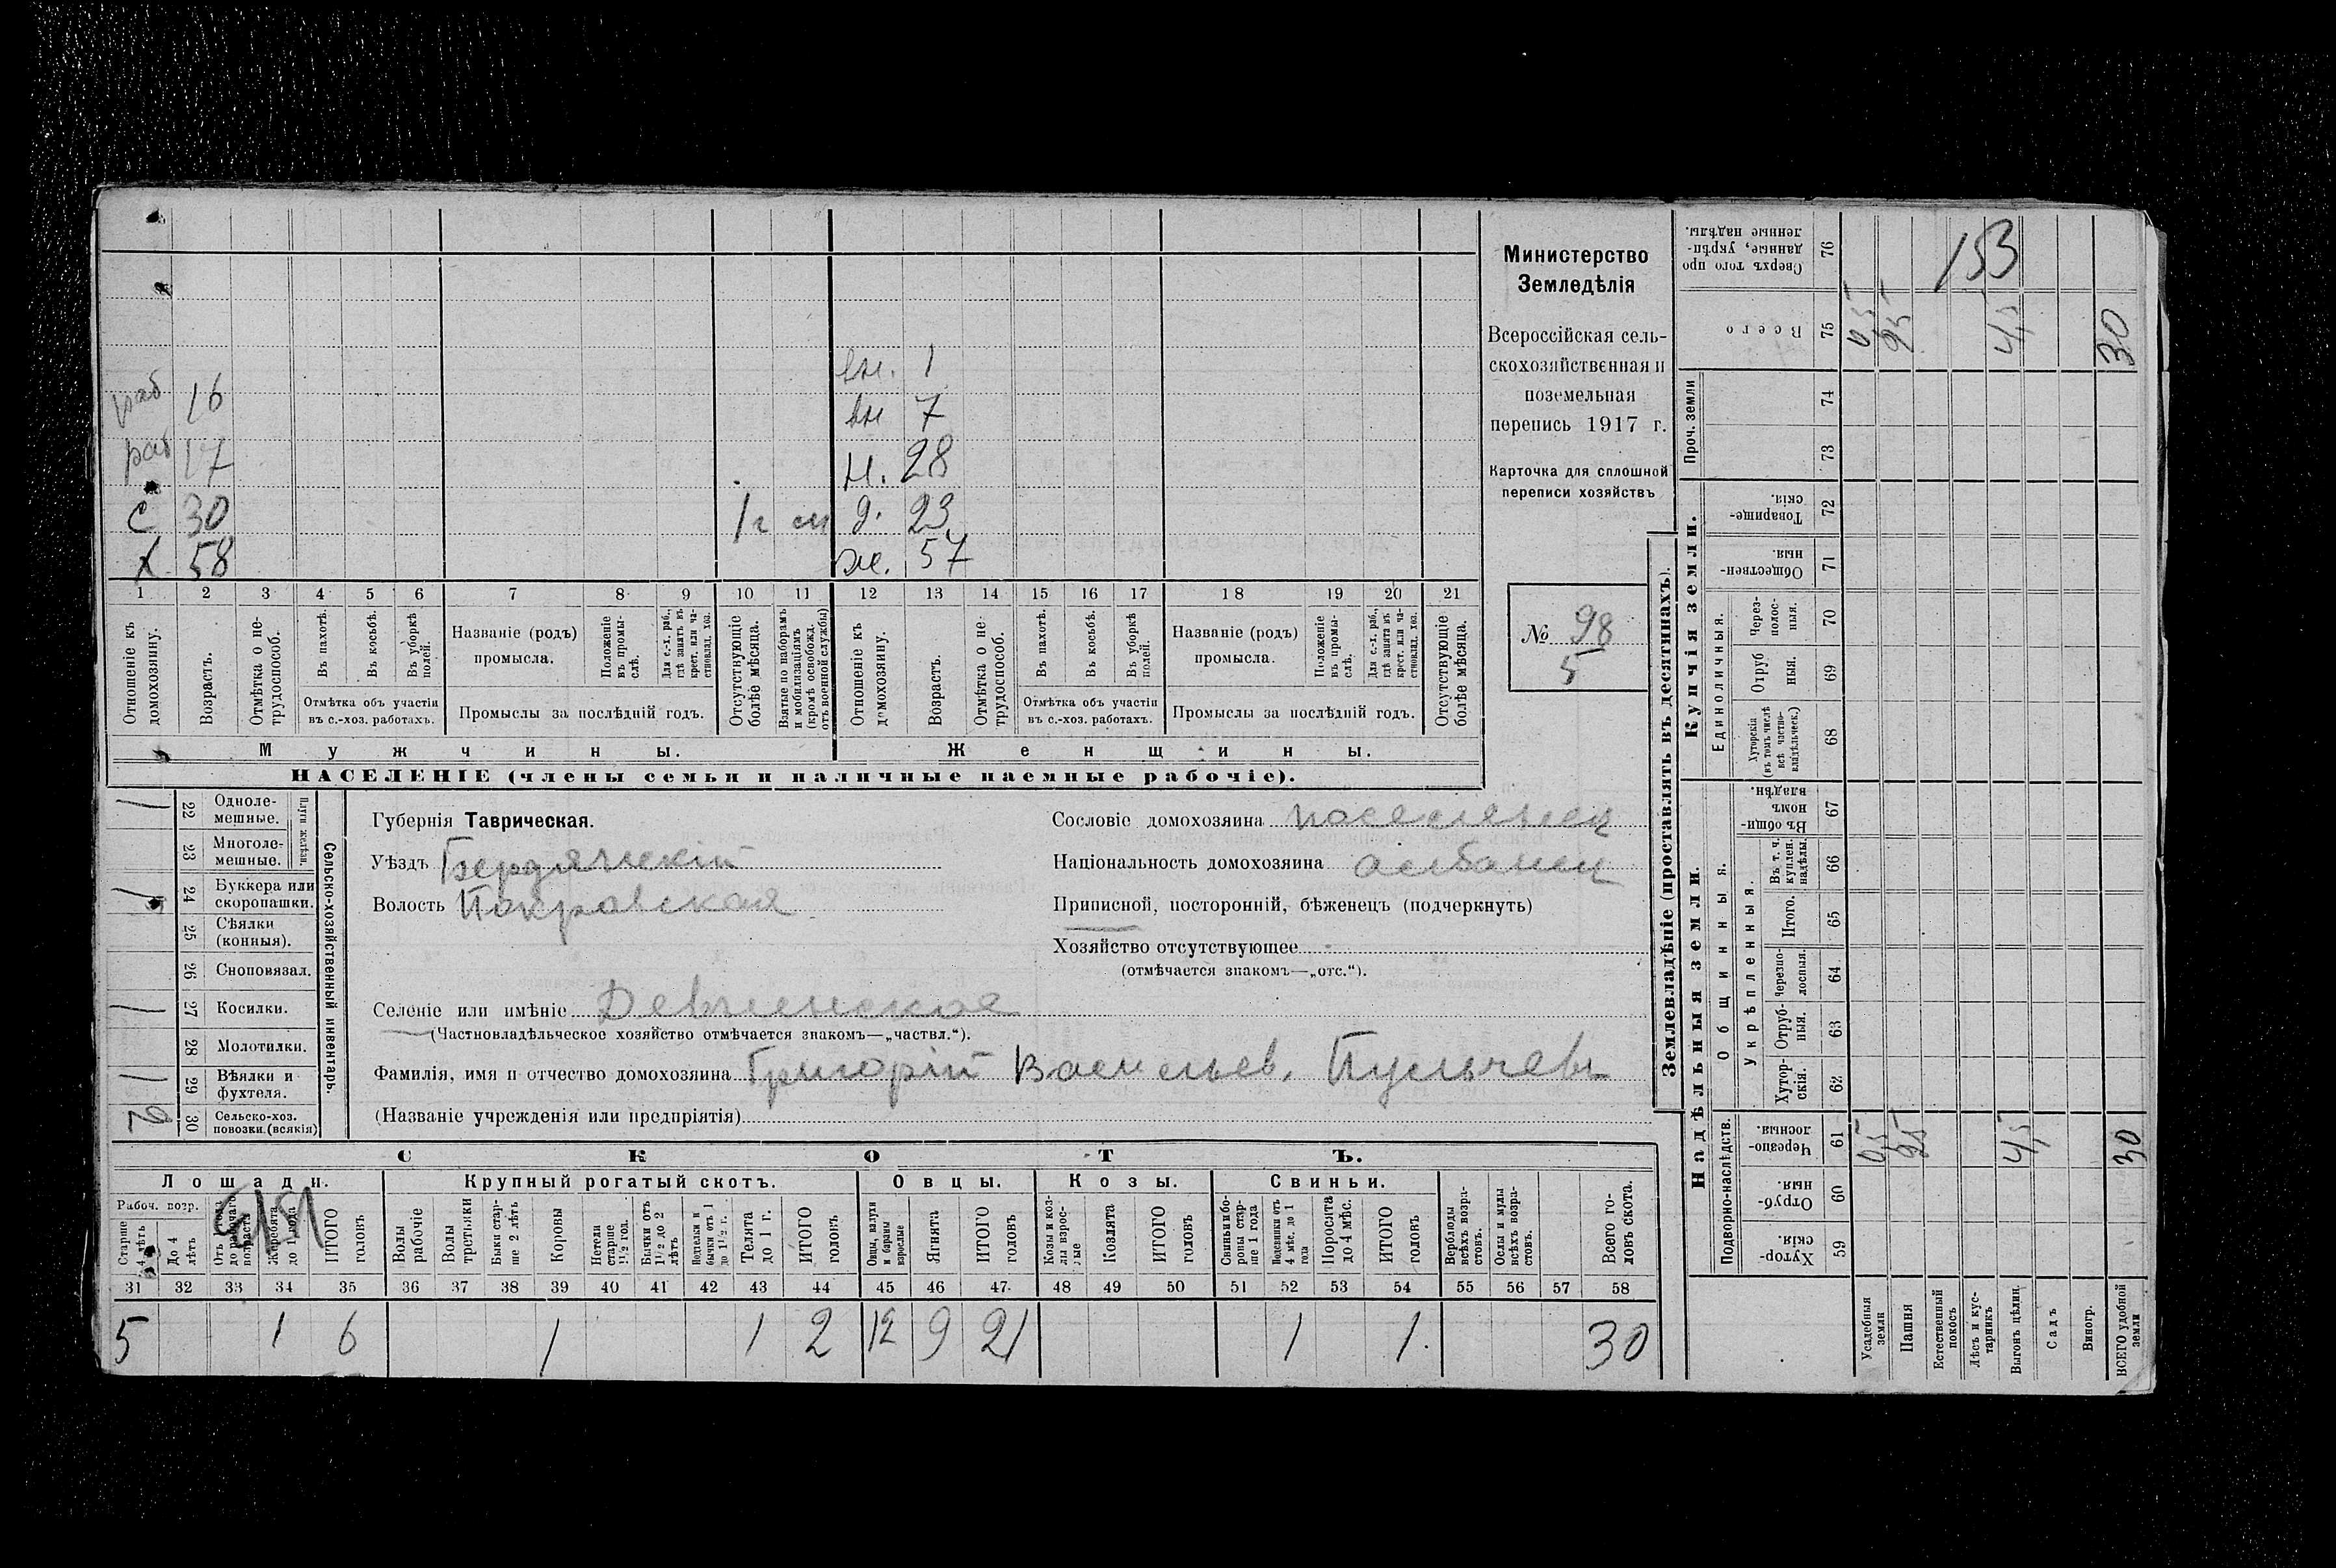 Министерство
Земледѣлія
Всероссійская сель-
скохозяйственная и
поземельная
перепись 1917 г.
Карточка для сплошной
переписи хозяйствъ
№ 98
5
вн. 1
раб 16 вн 7
раб 17 н. 28
с 30 1 г см д. 23
х 58 ж. 57
1 2 3 4 5 6 7 8 9 10 11 12 13 14 15 16 17 18 19 20 21
Отношеніе къ домохозяину.
Возрастъ.
Отмѣтка о не-трудоспособ.
Въ пахотѣ.
Въ косьбѣ.
Въ уборкѣ полей.
Отмѣтка объ участіи
въ с.-хоз. работахъ.
Названіе (родъ)
промысла.
Положеніе въ промы-слѣ.
Для с.-х. раб., гдѣ занятъ въ крест. или ча-стновлад. хоз.
Промыслы за послѣдній годъ.
Отсутствующіе болѣе мѣсяца.
Взятые по наборамъ и мобилизаціямъ (кромѣ освобожд. отъ военной службы)
Отношеніе къ домохозяину.
Возрастъ.
Отмѣтка о не-трудоспособ.
Въ пахотѣ.
Въ косьбѣ.
Въ уборкѣ полей.
Отмѣтка объ участіи
въ с.-хоз. работахъ.
Названіе (родъ)
промысла.
Положеніе въ промы-слѣ.
Для с.-х. раб., гдѣ занята въ крест. или ча-стновлад. хоз.
Промыслы за послѣдній годъ.
Отсутствующіе болѣе мѣсяца.
Мужчины. Женщины.
НАСЕЛЕНІЕ (члены семьи и наличные наемные рабочіе).
Сельско-хозяйственный инвентарь.
Плуги желѣзн.
1 22 Одноле-мешные.
23 Многоле-мешные.
1 24 Буккера или скоропашки.
25 Сѣялки (конныя).
26 Сноповязал.
1 27 Косилки.
28 Молотилки.
1 29 Вѣялки и фухтеля.
2 30 Сельско-хоз. повозки (всякія)
Губернія Таврическая.
Уѣздъ Бердянскій
Волость Покровская
Селеніе или имѣніе Девненское
(Частновладѣльческое хозяйство отмѣчается знакомъ—„частвл.“).
Фамилія, имя и отчество домохозяина Григорій Васильев. Пульчевъ
(Названіе учрежденія или предпріятія)
Сословіе домохозяина поселянин
Національность домохозяина албанец
Приписной, посторонній, бѣженецъ (подчеркнуть)
Хозяйство отсутствующее
(отмѣчается знакомъ—„отс.“).
СКОТЪ.
Лошади. Крупный рогатый скотъ. Овцы. Козы. Свиньи.
Рабоч. возр.
Старше 4 лѣтъ
До 4 лѣтъ
Отъ 1 года до рабочаго возраста
Жеребята до 1 года
ИТОГО головъ
Волы рабочіе
Волы третьяки
Быки стар-ше 2 лѣтъ
Коровы
Нетели старше 1½ год.
Бычки отъ 1½ до 2 лѣтъ
Нетельки и бычки отъ 1 до 1½ г.
Телята до 1 г.
ИТОГО головъ
Овцы, валухи и бараны взрослые
Ягнята
ИТОГО головъ
Козы и коз-лы взрос-лые
Козлята
ИТОГО головъ
Свиньи и бо-ровы стар-ше 1 года
Подсвинки отъ 4 мѣс. до 1 года
Поросята до 4 мѣс.
ИТОГО головъ
Верблюды всѣхъ возра-стовъ.
Ослы и мулы всѣхъ возра-стовъ.
Всего го-ловъ скота.
31 32 33 34 35 36 37 38 39 40 41 42 43 44 45 46 47 48 49 50 51 52 53 54 55 56 57 58
5 1 6 1 1 2 12 9 21 1 1 30
Землевладѣніе (проставлять въ десятинахъ).
Надѣльныя земли. Купчія земли. Проч. земли
Подворно-наслѣдств.
Общинныя.
Укрѣпленныя.
Единоличныя.
Хутор-скія. 59
Отруб-ныя. 60
Черезпо-лосныя. 61
Хутор-скія. 62
Отруб-ныя. 63
Черезпо-лосныя. 64
Итого. 65
Въ т. ч. куплен. надѣлы. 66
Въ общи-номъ владѣн. 67
Хуторскія (въ томъ числѣ всѣ частно-владѣльческ.) 68
Отруб ныя. 69
Через-полос-ныя. 70
Обществен-ныя. 71
Товарище-скія. 72
73
74
Всего 75
Сверхъ того про данные, укрѣп-ленные надѣлы. 76
Усадебныя земли
Пашня
Естественный покосъ
Лѣсъ и кус-тарникъ
Выгонъ цѣлин.
Садъ
Виногр.
ВСЕГО удобной земли
05 25 4,5 30
05 25 4,5 30
153